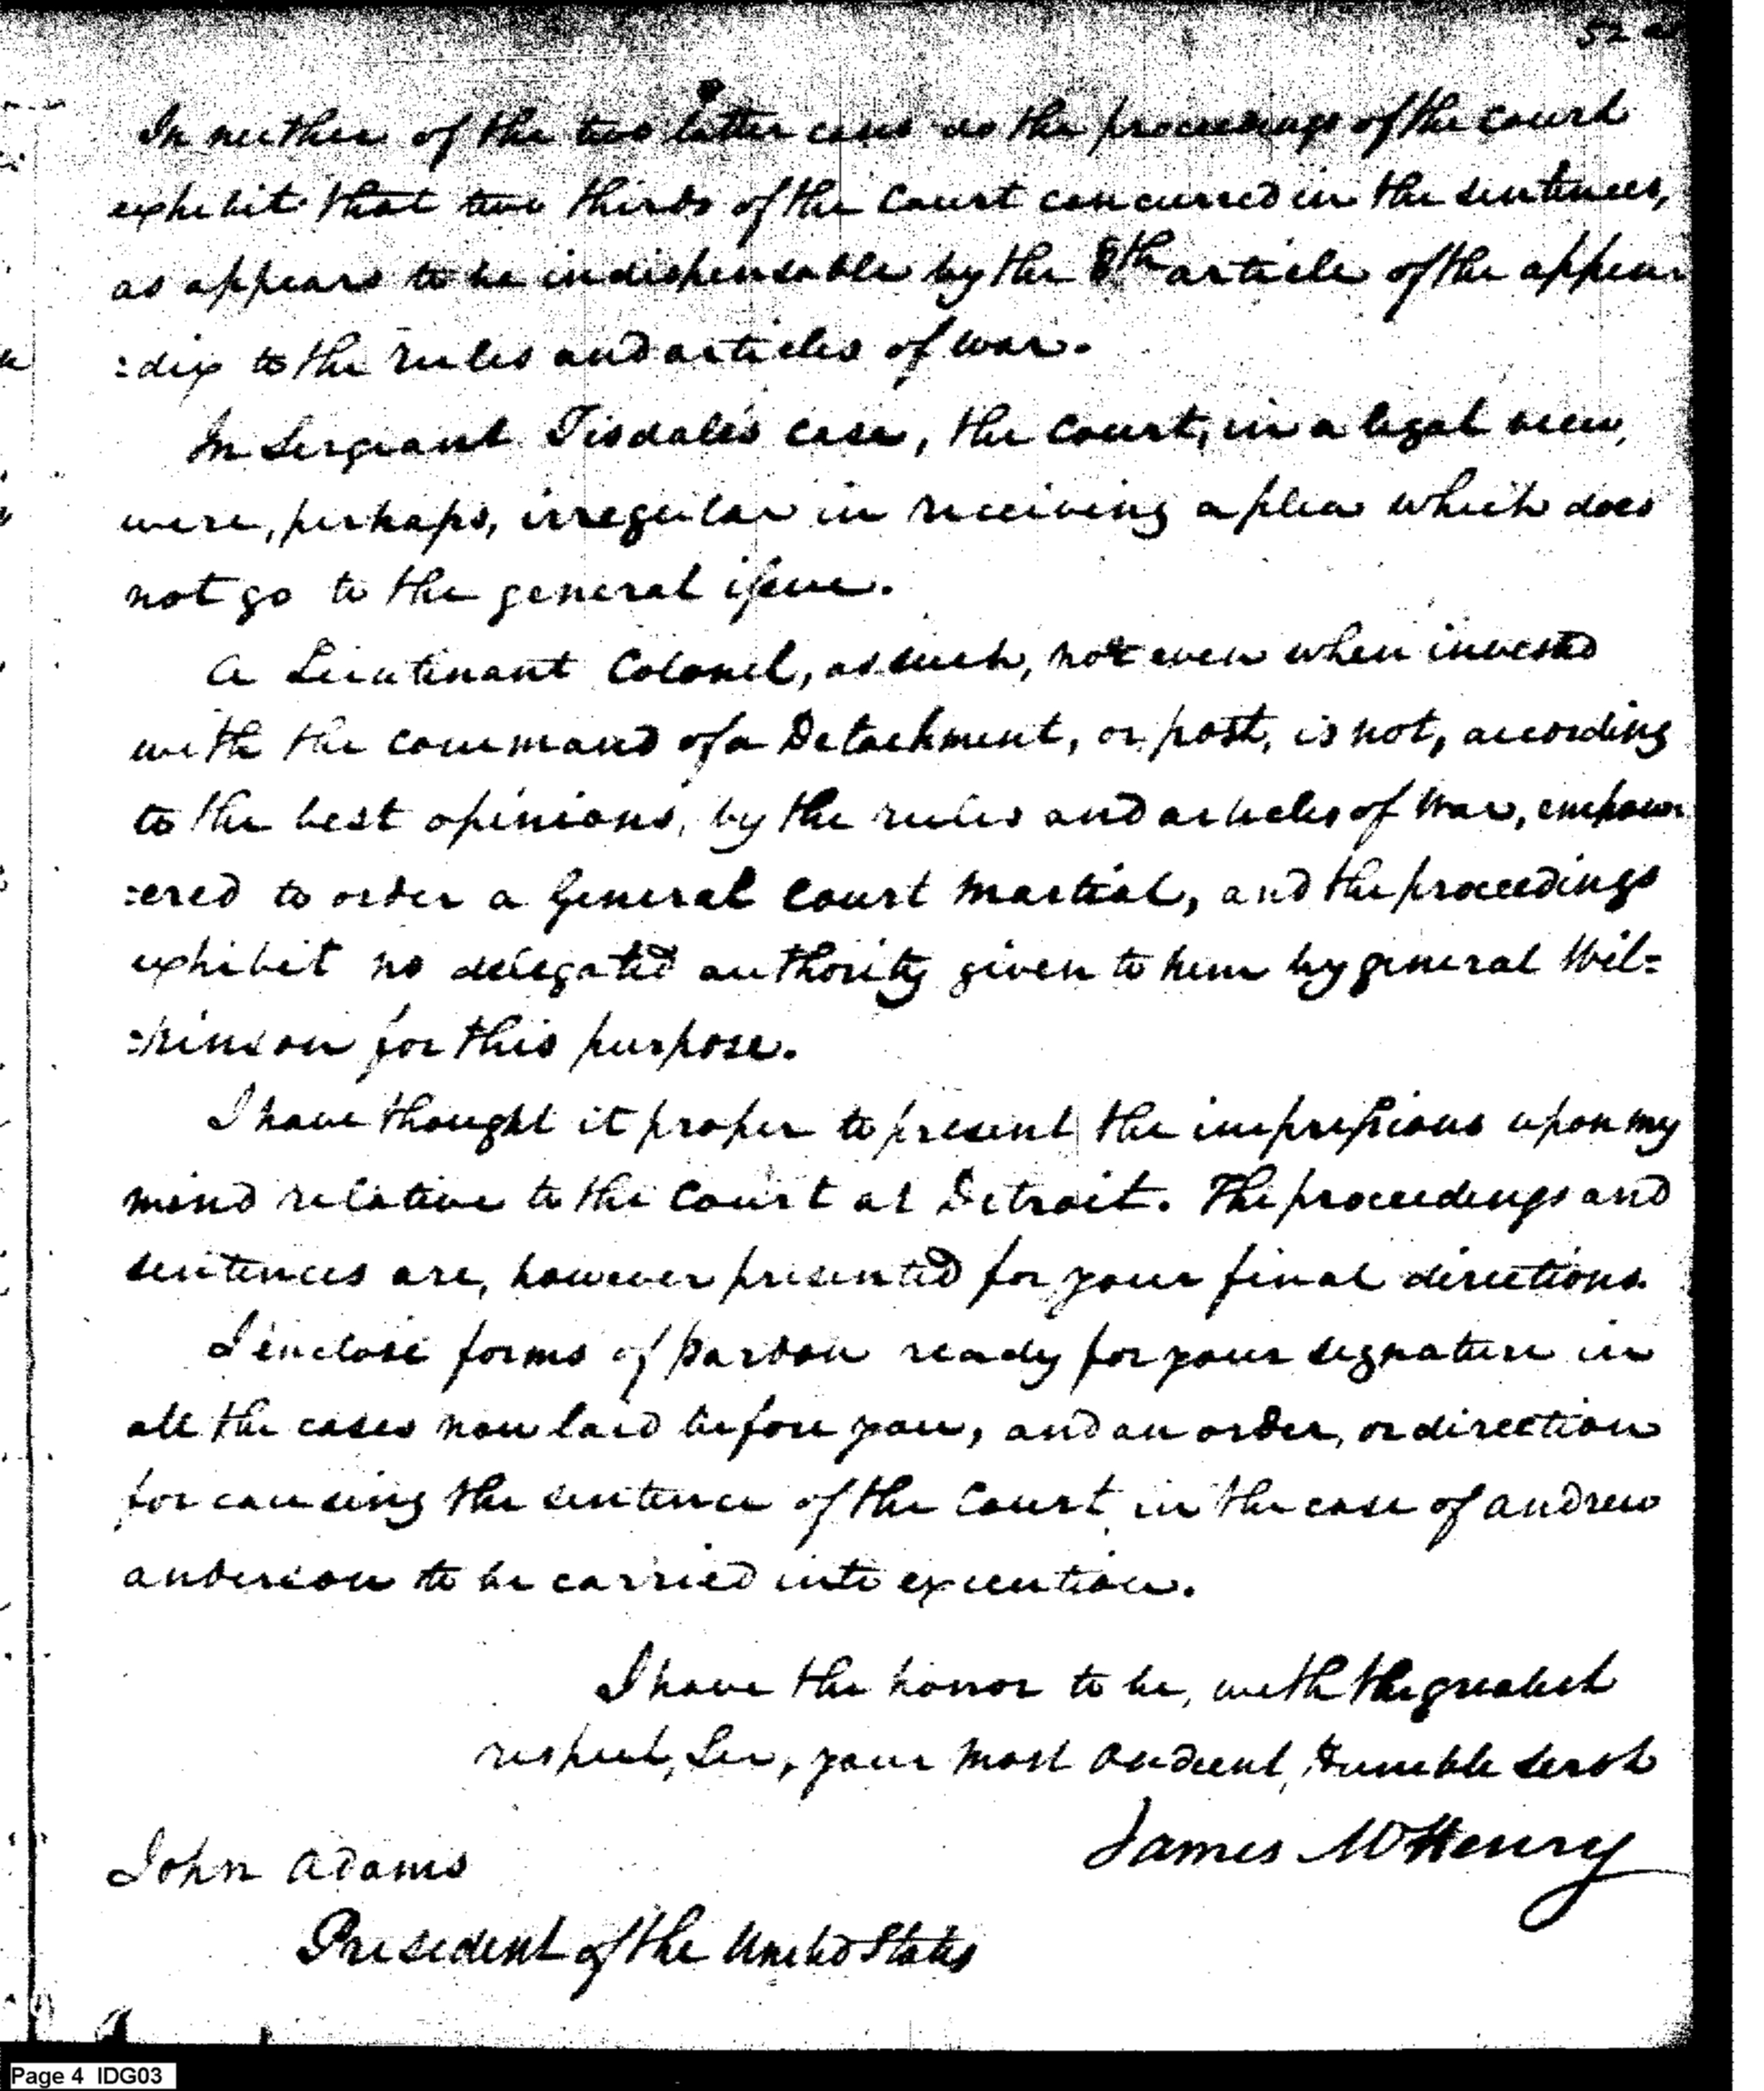 52
In neither of the two latter cases do the proceedings of the court
exhibit that two thirds of the Court concurred in the sentences,
as appears to be indispensable by the 8th article of the appen
:dix to the rules and articles of war.
In Sergeant Tisdale's case, the Court, in a legal view,
were, perhaps, irregular in receiving a plea which does
not go to the general issue.
A Lieutenant Colonel, as such, not even when invested
with the command of a Detachment, or post, is not, according
to the best opinions, by the rules and articles of War, empow
:ered to order a General Court Martial, and the proceedings
exhibit no delegated authority given to him by general Wil=
:kinson for this purpose.
I have thought it proper to present the impressions upon my
mind relative to the Court at Detroit. The proceedings and
sentences are, however presented for your final directions.
I enclose forms of pardon ready for your signature in
all the cases now laid before you, and an order, or direction
for causing the sentence of the Court in the case of Andrew
Anderson to be carried into execution.
I have the honor to be, with the greatest
respect, Sir, your most Obedient, Humble Servt
James McHenry
John Adams
President of the United States
Page 4 IDG03